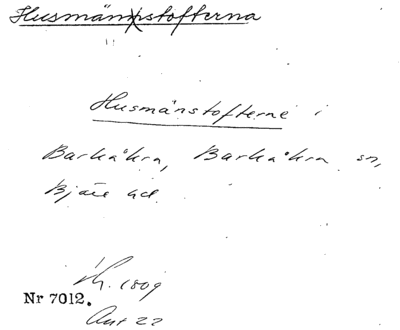 Husmännstofterna
Husmänstofterne i
Barkåkra, Barkåkra sn,
Bjäre hd.
1809
Nr 7012.
Akt 22